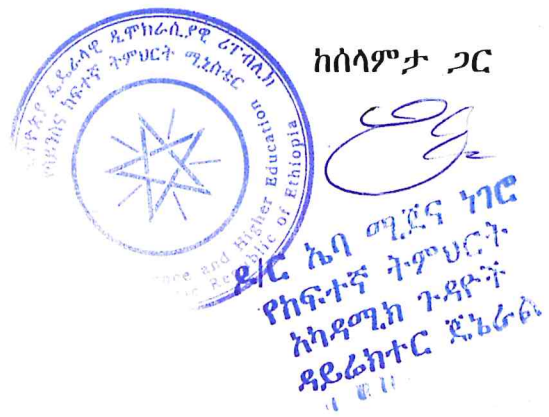 ከሰላምታ ጋር
ፌዴራላዊ ዲሞክራሲያዊ ሪፐብሊክ
ከፍተኛ ትምህርት ሚኒስቴር
and Higher Education
of Ethiopia
ዶ/ር ኤባ ሚጀና ነገሮ
የከፍተኛ ትምህርት
አካዳሚክ ጉዳዮች
ዳይሬክተር ጄኔራል